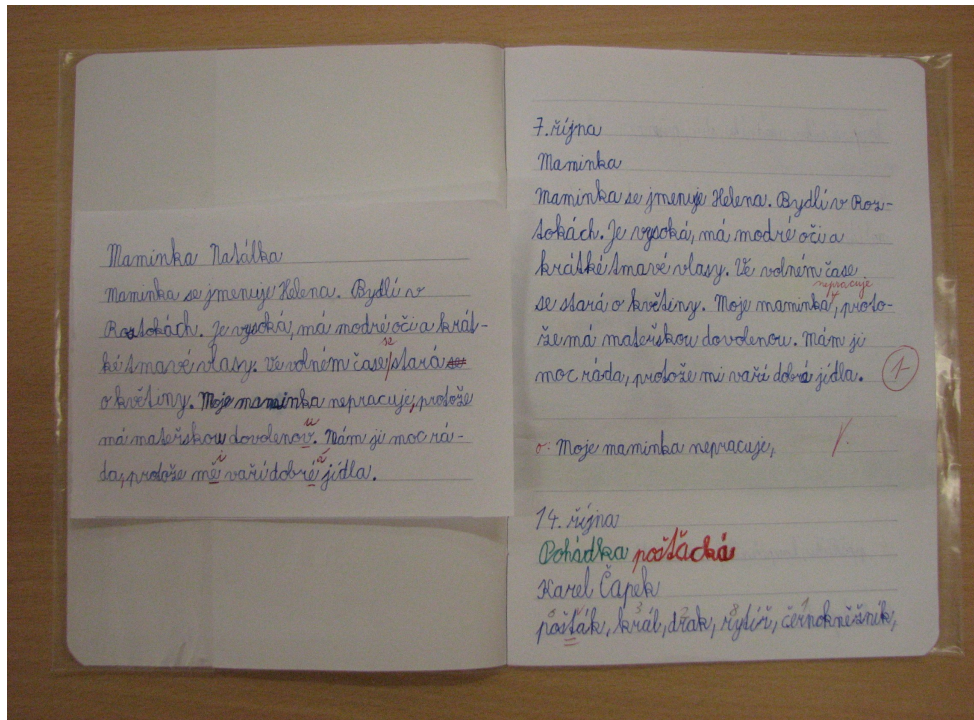 Maminka Natálka
Maminka se jmenuje Helena. Bydlí v
Roztokách. Je vysoká, má modré oči a krát-
ké tmavé vlasy. Ve volném čase se stará
o květiny. Moje maminka nepracuje, protože
má mateřskou dovolenov. Mám ji moc rá-
da, protože mě vaří dobré jídla.
7. října
Maminka
Maminka se jmenuje Helena. Bydlí v Roz-
tokách. Je vysoká, má modré oči a
krátké tmavé vlasy. Ve volném čase
nepracuje
se stará o květiny. Moje maminka, proto-
že má mateřskou dovolenou. Mám ji
moc ráda, protože mi vaří dobrá jídla. 1-
o. Moje maminka nepracuje,
14. října
Pohádka pošťácká
Karel Čapek
pošťák, král, drak, rytíř, černokněžník,